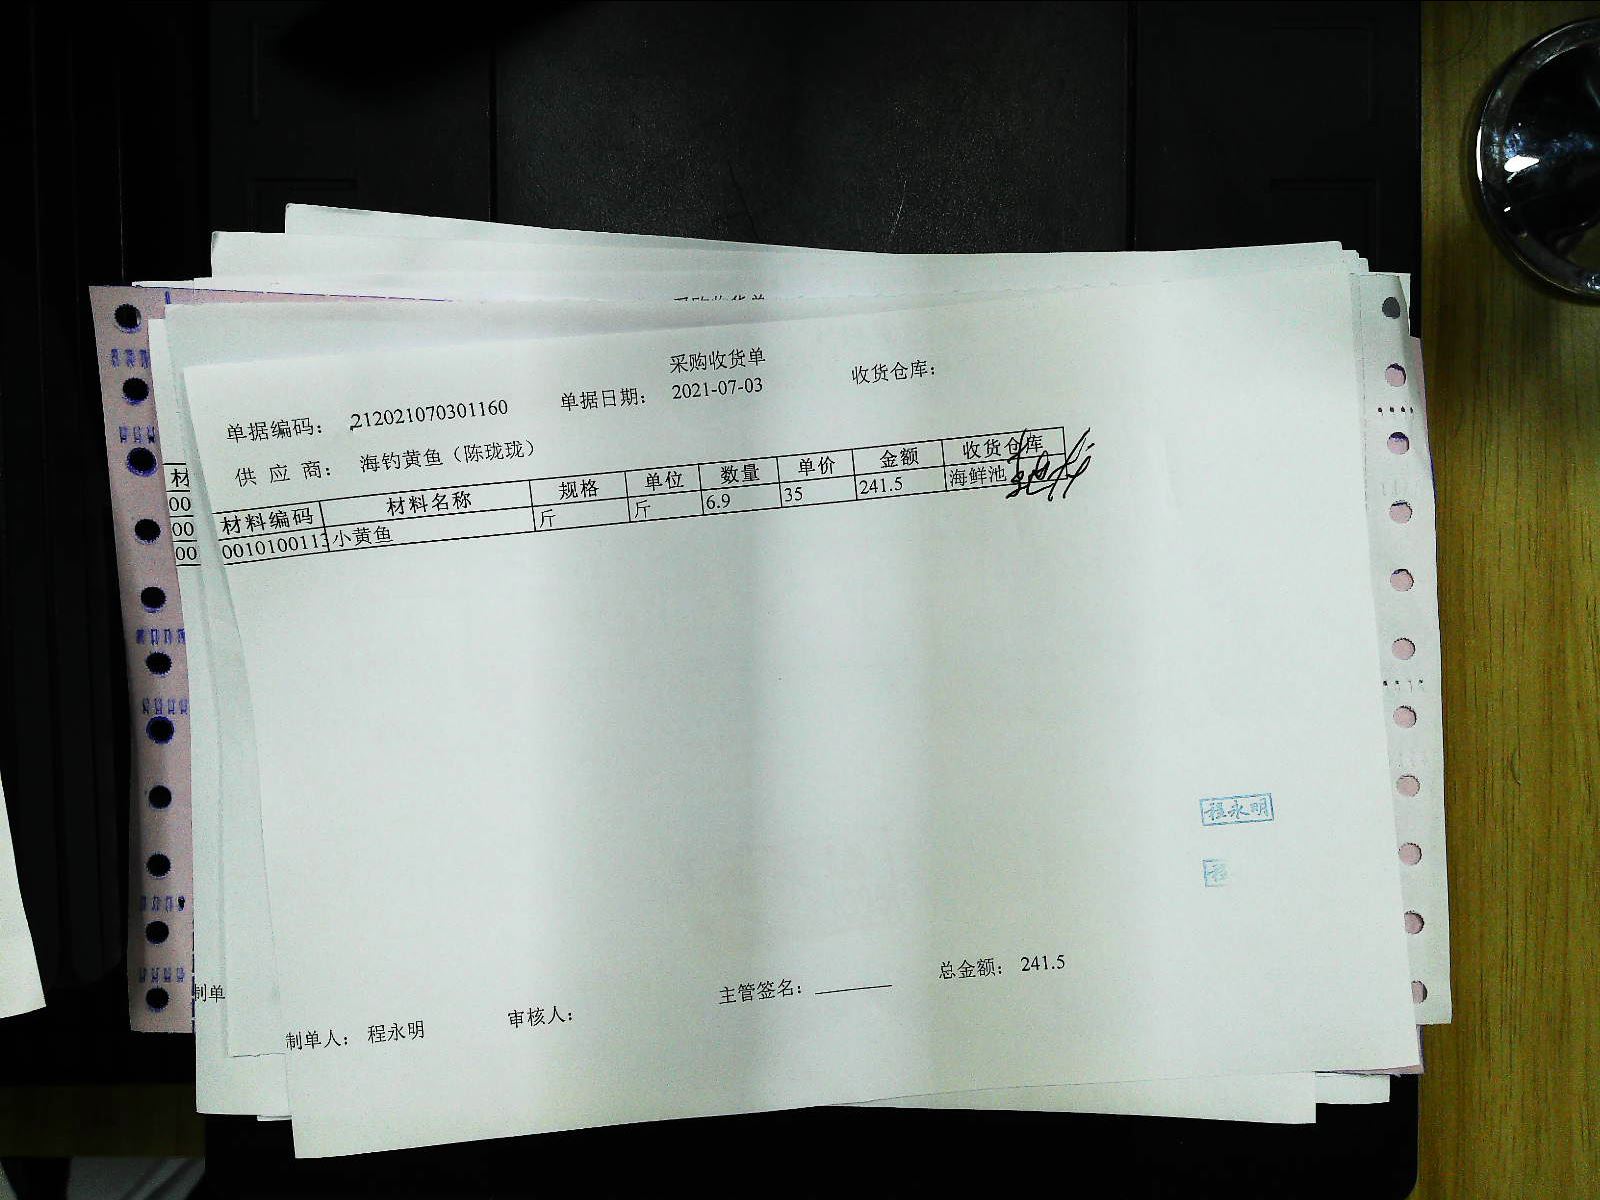 采购收货单
单据编码： 212021070301160 单据日期： 2021-07-03 收货仓库：
供 应 商： 海钓黄鱼（陈珑珑）
材料编码 材料名称 规格 单位 数量 单价 金额 收货仓库
0010100113 小黄鱼 斤 斤 6.9 35 241.5 海鲜池
材
00
00
00
程永明
制单
总金额： 241.5
主管签名：
制单人： 程永明 审核人：